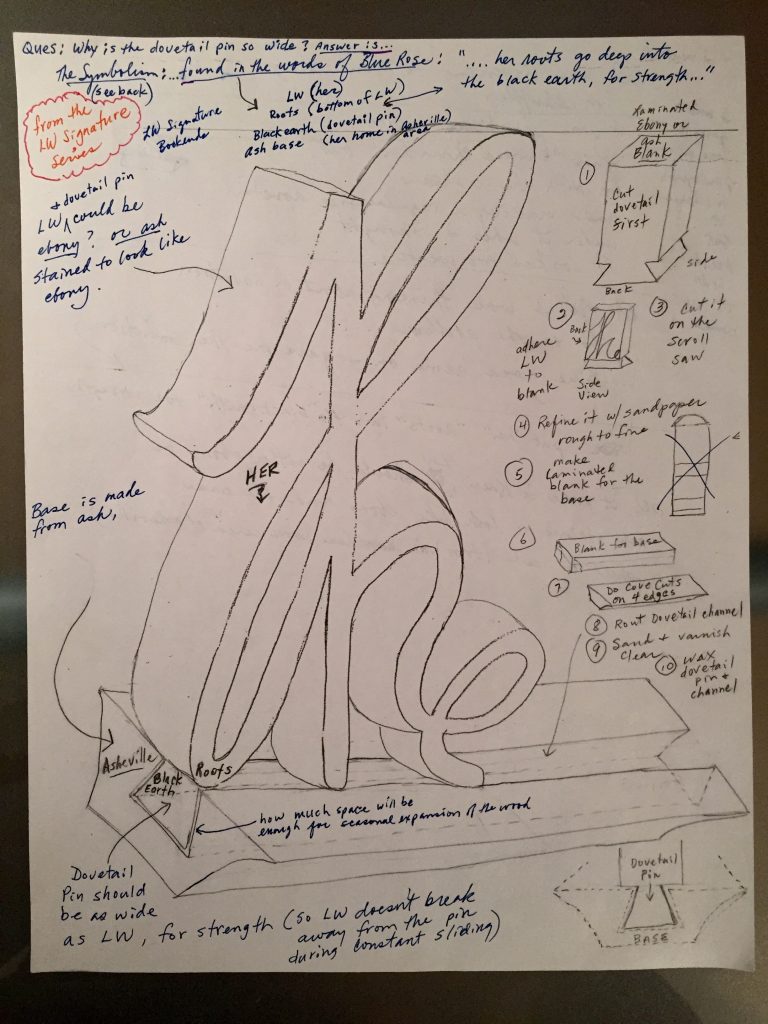 Ques: Why is the dovetail pin so wide? Answer is...
The Symbolism:...found in the words of Blue Rose: "....her roots go deep into
the black earth, for strength..."
(see back)
LW (her)
Roots (bottom of LW)
Black earth (dovetail pin)
ash base (her home in Asheville
area)
from the
LW Signature
Series
LW Signature
Bookends
+ dovetail pin
LW ^ could be
ebony? or ash
stained to look like
ebony.
HER
?
Base is made
from ash,
Laminated
Ebony or
ash
Blank
① Cut
dovetail
first
Side
Back
②
Back
adhere
LW
to
blank
Side
View
③ Cut it
on the
scroll
saw
④ Refine it w/ sandpaper
rough to fine
⑤ make
laminated
blank for the
base
⑥ Blank for base
⑦ Do Cove Cuts
on 4 edges
⑧ Rout Dovetail channel
⑨ Sand + varnish
clear
⑩ wax
dovetail
pin +
channel
Asheville
Black
Earth
Roots
how much space will be
enough for seasonal expansion of the wood
Dovetail
Pin should
be as wide
as LW, for strength (so LW doesn't break
away from the pin
during constant sliding)
Dovetail
Pin
BASE